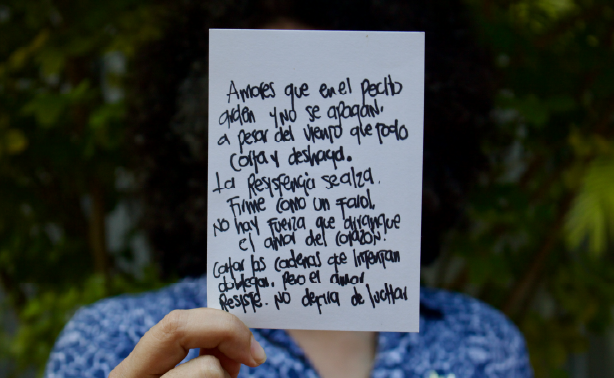 Amores que en el pecho
arden y no se apagan,
a pesar del viento que todo
corta y deshaga.
La Resistencia se alza.
Firme como un farol,
No hay fuerza que arranque
el amor del corazón.
Cortar las cadenas que intentan
doblegar. Pero el amor
Resiste. No dejira de luchar